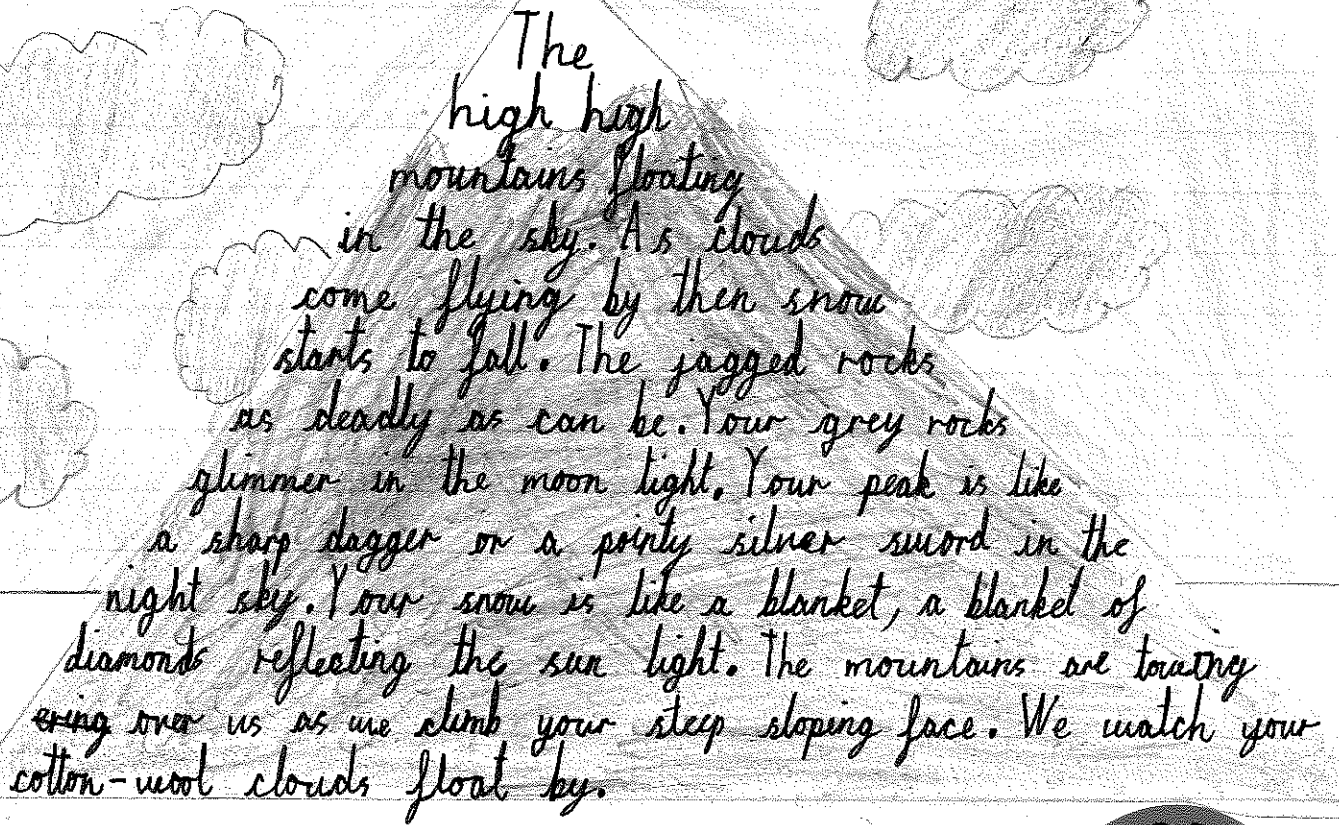 The
high high
mountains floating
in the sky. As clouds
come flying by then snow
starts to fall. The jagged rocks
as deadly as can be. Your grey rocks
glimmer in the moon light. Your peak is like
a sharp dagger or a pointy silver sword in the
night sky. Your snow is like a blanket, a blanket of
diamonds reflecting the sun light. The mountains are
ering over us as we climb your steep sloping face. We watch your
cotton-wool clouds float by.